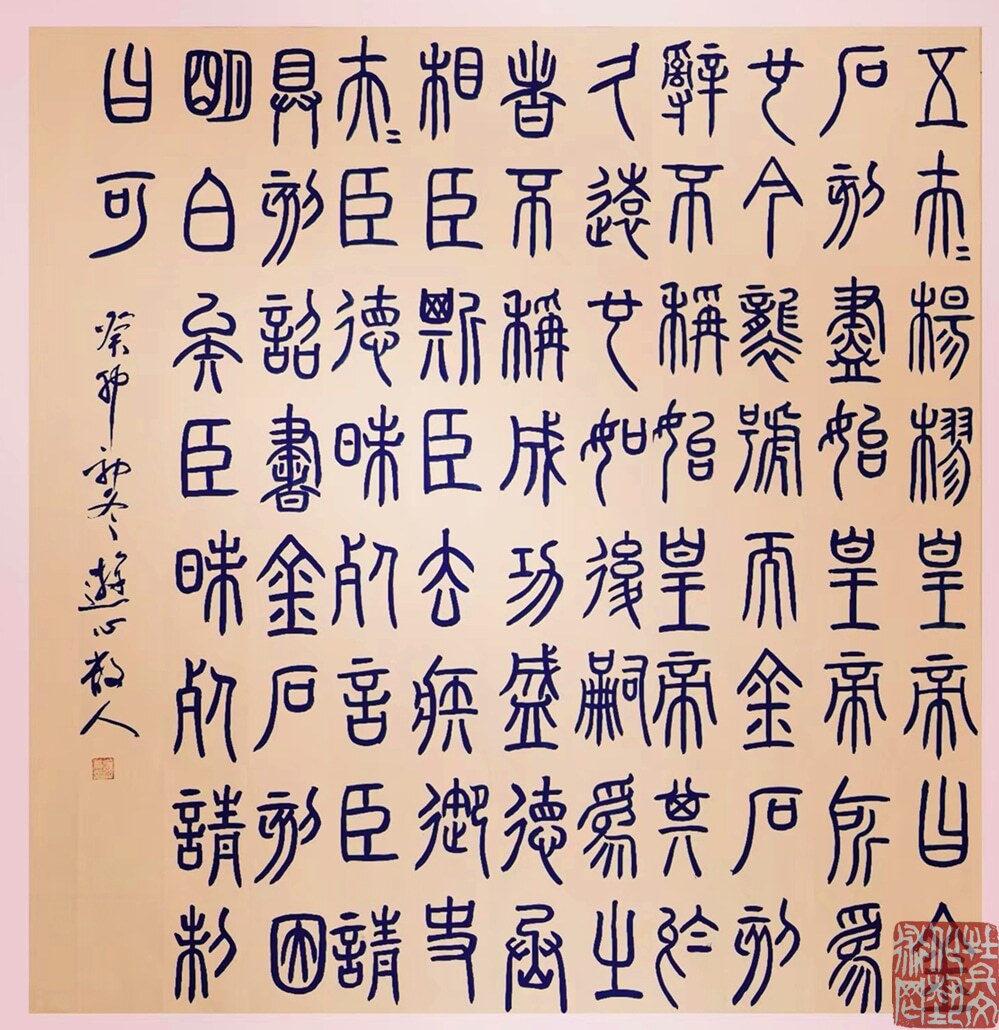 五夫〻楊樛皇帝曰金
石刻盡始皇帝所爲
也今襲號而金石刻
辭不稱始皇帝其於
久遠也如後嗣爲之
者不稱成功盛德丞
相臣斯臣去疾御史
夫〻臣德昧死言臣請
具刻詔書金石刻因
明白矣臣昧死請制
曰可
癸卯初冬遊心散人